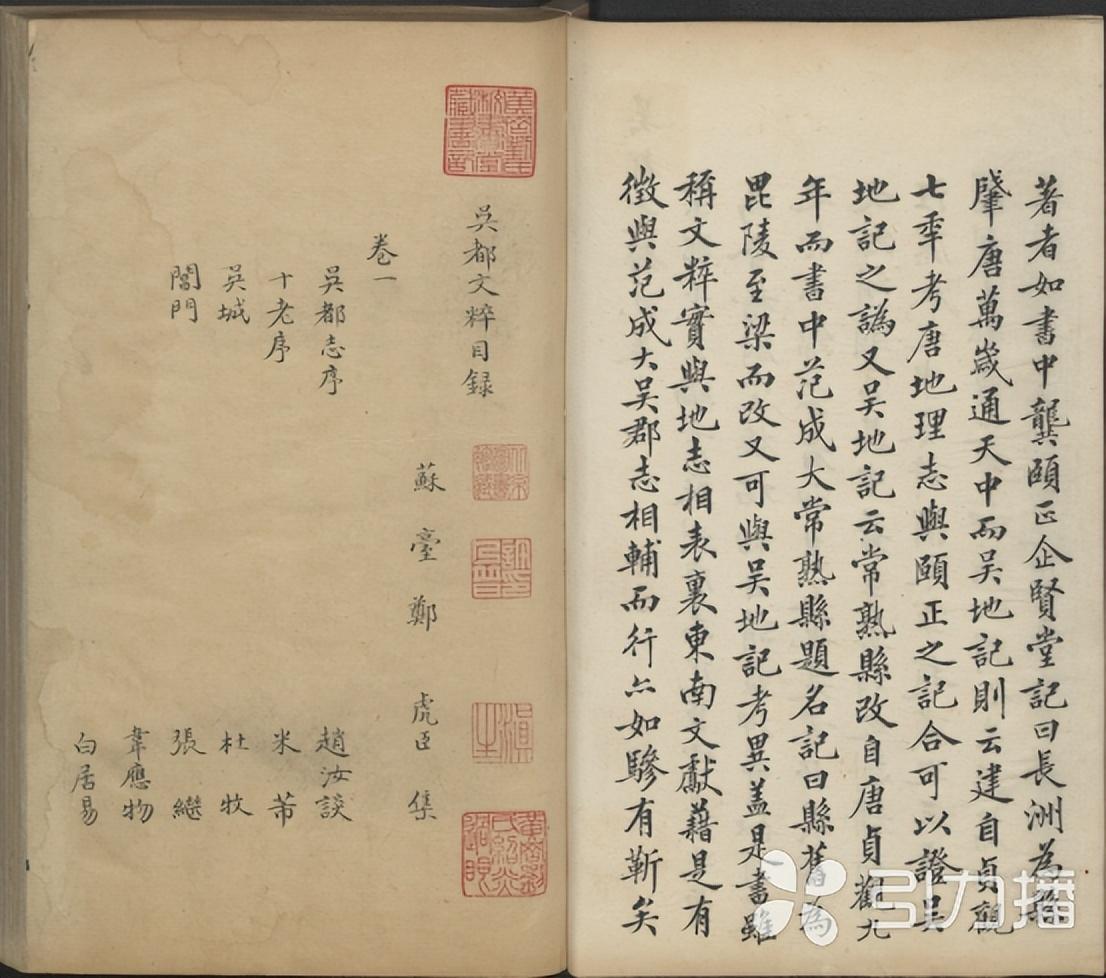 著者如書中龔頤正企賢堂記曰長洲為縣
肇唐萬歲通天中而吴地記則云建自貞觀
七年考唐地理志與頤正之記合可以證吴
地記之譌又吴地記云常熟縣改自唐貞觀九
年而書中范成大常熟縣題名記曰縣舊為
毘陵至梁而改又可與吴地記考異蓋是書雖
稱文粹實與地志相表裏東南文獻藉是有
徵與范成大吴郡志相輔而行亦如驂有靳矣
吴都文粹目録
蘇臺鄭虎臣集
卷一
吴都志序 趙汝談
十老序 米芾
吴城 杜牧
閶門 張繼
韋應物
白居易
引力播